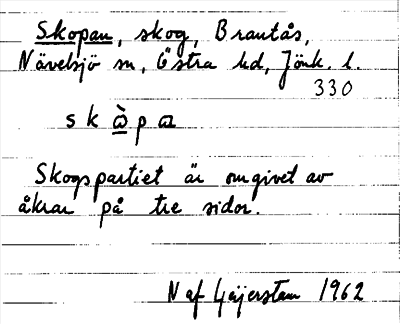 Skopan, skog, Brantås,
Nävelsjö sn, Östra hd, Jönk. l.
330
s k ò p a
Skogspartiet är omgivet av
åkrar på tre sidor.
N af Geijerstam 1962